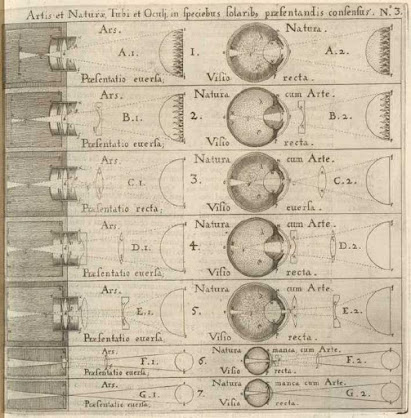 Artis et Naturæ, Tubi et Oculi, in speciebus solarib, præsentandis consensus. N.º 3.
Ars. Natura.
A.1. 1. A.2.
Præsentatio euersa; Visio recta.
Ars. Natura cum Arte.
B.1. 2. B.2.
Præsentatio euersa; Visio recta.
Ars. Natura cum Arte.
C.1. 3. C.2.
Præsentatio recta; Visio euersa.
Ars. Natura cum Arte.
D.1. 4. D.2.
Præsentatio euersa; Visio recta.
Ars. Natura cum Arte.
E.1. 5. E.2.
Præsentatio euersa; Visio recta.
Ars. Natura manca cum Arte.
F.1. 6. F.2.
Præsentatio euersa; Visio recta.
Ars. Natura manca cum Arte.
G.1. 7. G.2.
Præsentatio euersa; Visio recta.